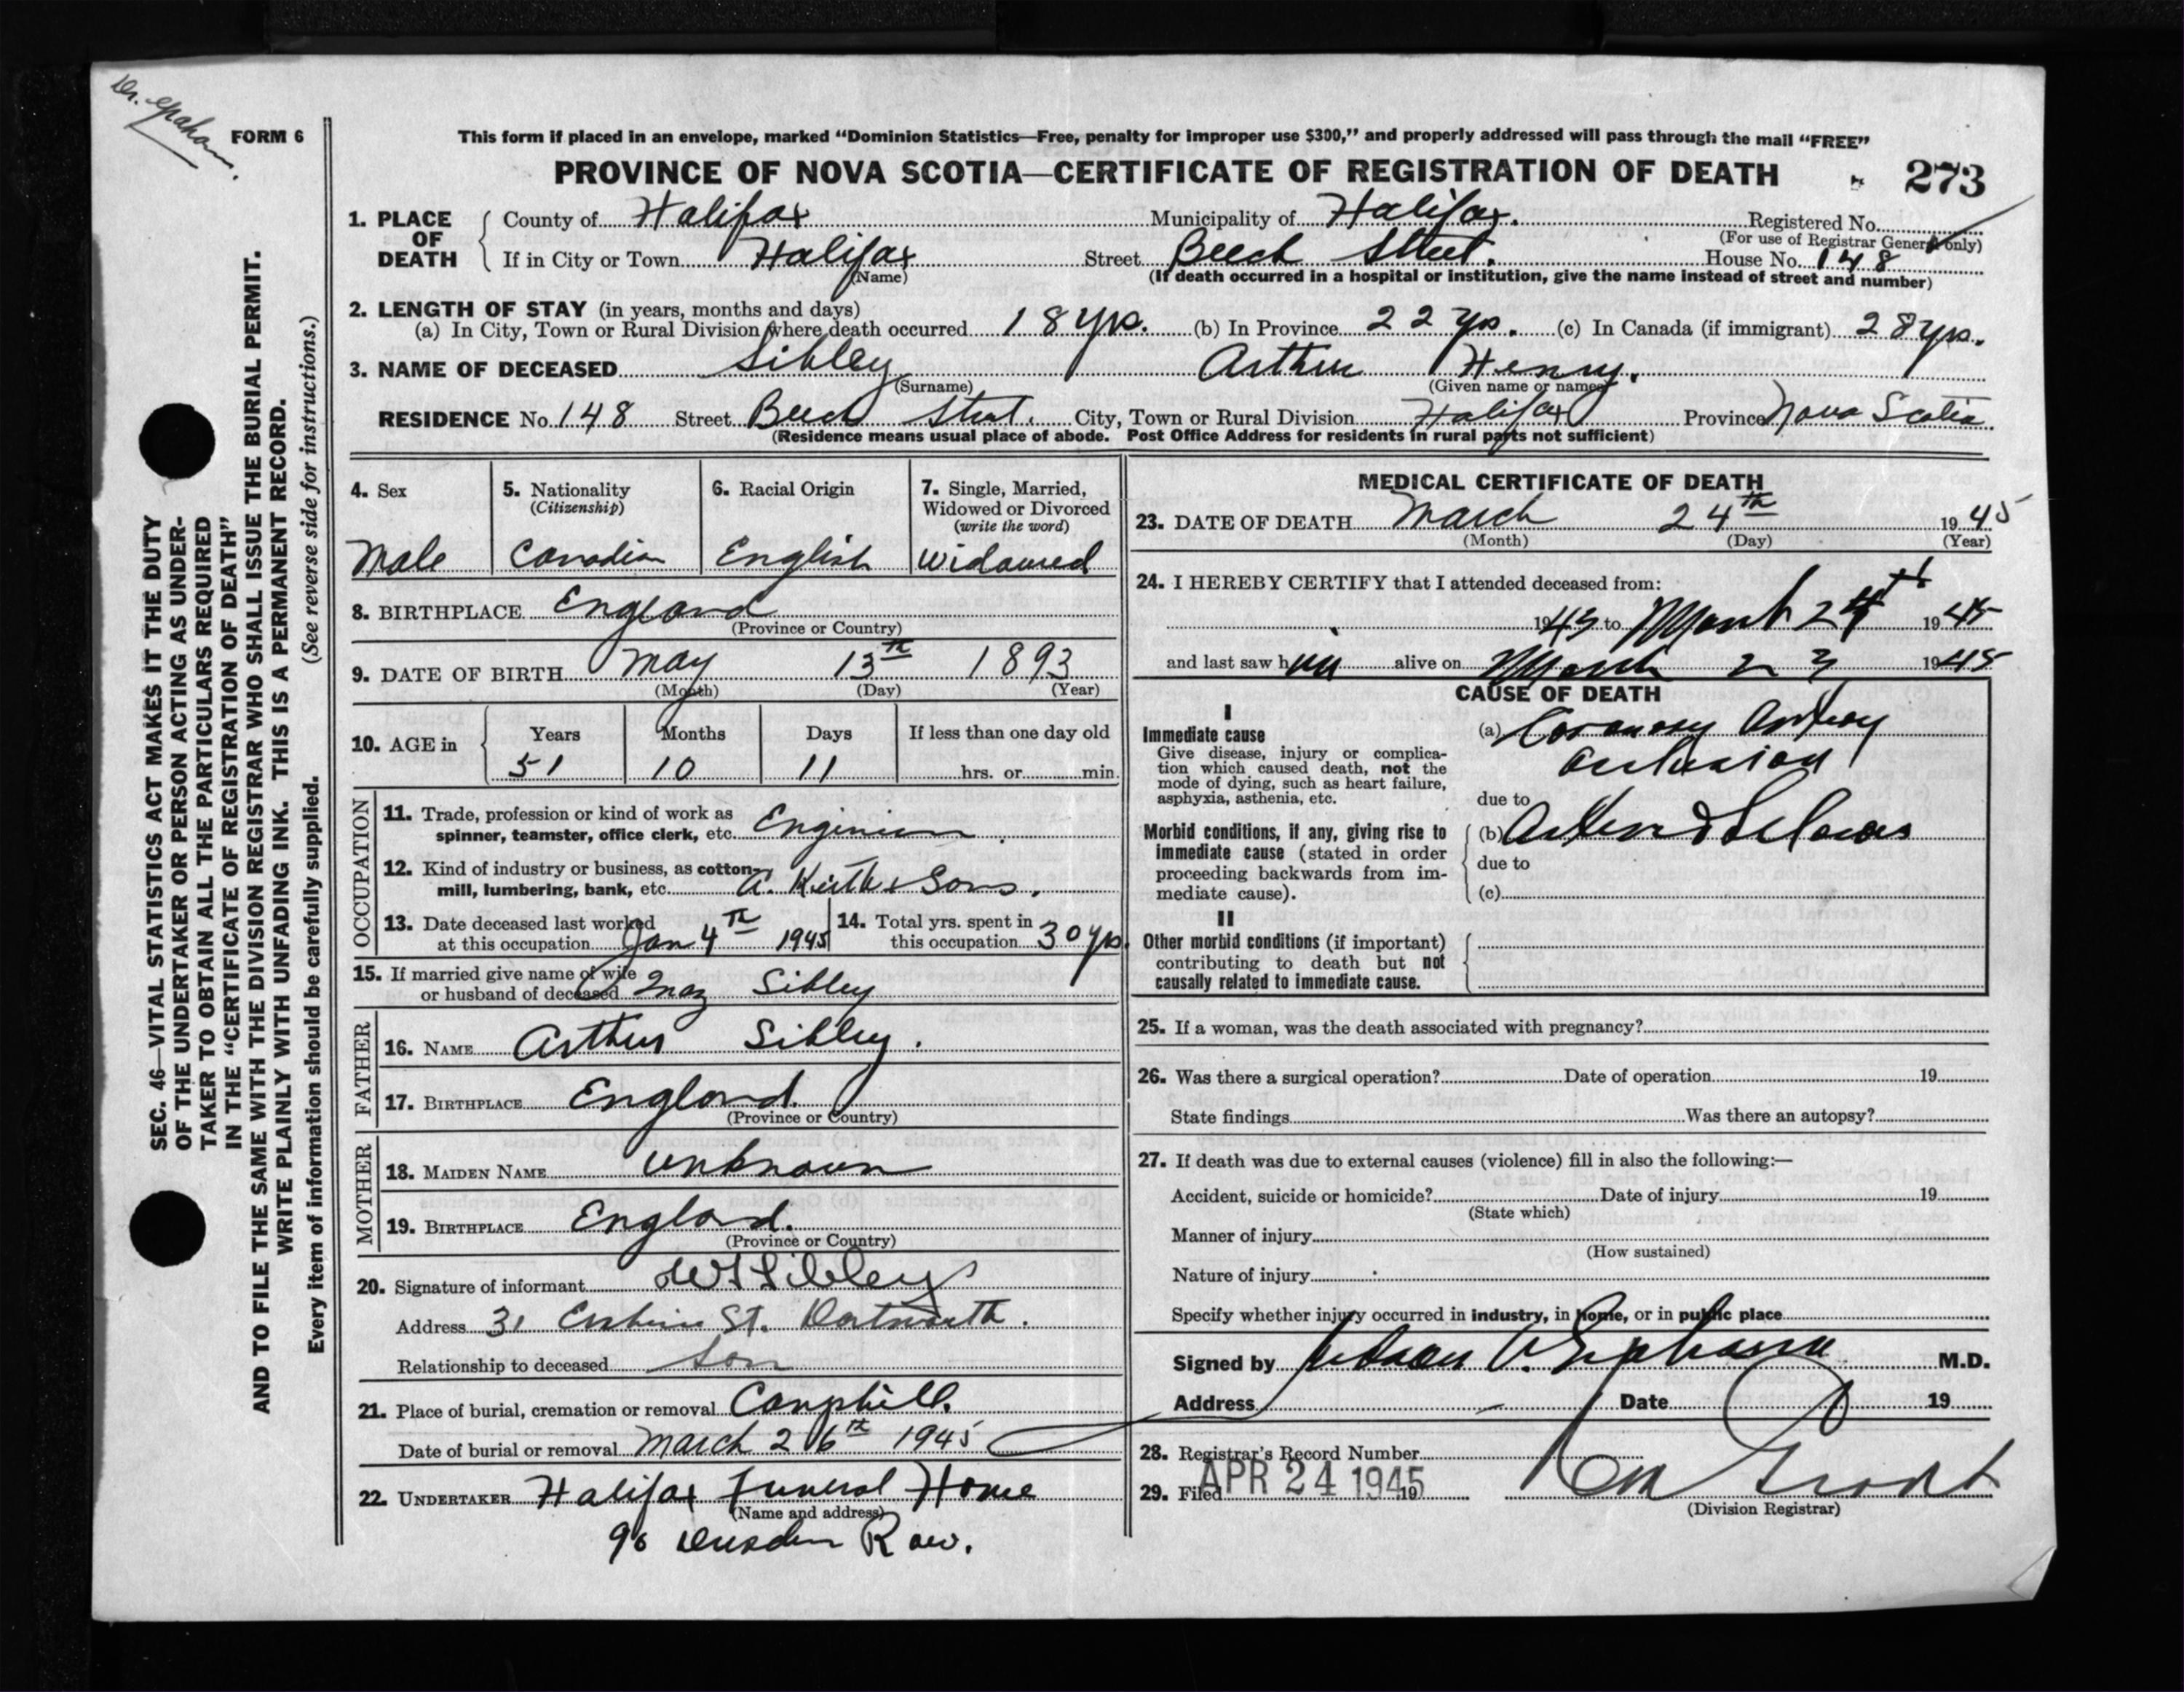 Dr. Graham.
FORM 6
This form if placed in an envelope, marked “Dominion Statistics—Free, penalty for improper use $300,” and properly addressed will pass through the mail “FREE”
PROVINCE OF NOVA SCOTIA—CERTIFICATE OF REGISTRATION OF DEATH 273
1. PLACE OF DEATH County of Halifax Municipality of Halifax. Registered No.
(For use of Registrar General only)
If in City or Town Halifax Street Beech Street. House No. 148
(Name) (If death occurred in a hospital or institution, give the name instead of street and number)
2. LENGTH OF STAY (in years, months and days)
(a) In City, Town or Rural Division where death occurred 18 yrs. (b) In Province 22 yrs. (c) In Canada (if immigrant) 28 yrs.
3. NAME OF DECEASED Sibley Arthur Henry.
(Surname) (Given name or names)
RESIDENCE No. 148 Street Beech Street. City, Town or Rural Division Halifax Province Nova Scotia
(Residence means usual place of abode. Post Office Address for residents in rural parts not sufficient)
4. Sex 5. Nationality 6. Racial Origin 7. Single, Married,
(Citizenship) Widowed or Divorced
(write the word)
Male Canadian English Widowed
8. BIRTHPLACE England
(Province or Country)
9. DATE OF BIRTH May 13th 1893
(Month) (Day) (Year)
10. AGE in Years Months Days If less than one day old
51 10 11 hrs. or min.
OCCUPATION
11. Trade, profession or kind of work as
spinner, teamster, office clerk, etc. Engineer.
12. Kind of industry or business, as cotton-
mill, lumbering, bank, etc. A. Keith & Sons.
13. Date deceased last worked
at this occupation Jan 4th 1945
14. Total yrs. spent in
this occupation 30 yrs.
15. If married give name of wife
or husband of deceased Inaz Sibley
FATHER
16. NAME Arthur Sibley.
17. BIRTHPLACE England.
(Province or Country)
MOTHER
18. MAIDEN NAME unknown
19. BIRTHPLACE England.
(Province or Country)
20. Signature of informant Sibley
Address 31 St. Dartmouth.
Relationship to deceased Son
21. Place of burial, cremation or removal Camphill.
Date of burial or removal March 26th 1945
22. UNDERTAKER Halifax Funeral Home
(Name and address)
90 Dresden Row.
MEDICAL CERTIFICATE OF DEATH
23. DATE OF DEATH March 24th 1945
(Month) (Day) (Year)
24. I HEREBY CERTIFY that I attended deceased from:
1943 to March 24th 1945
and last saw him alive on March 23 1945
CAUSE OF DEATH
I
Immediate cause
Give disease, injury or complica-
tion which caused death, not the
mode of dying, such as heart failure,
asphyxia, asthenia, etc.
(a) Coronary Artery
occlusion
due to
Morbid conditions, if any, giving rise to
immediate cause (stated in order
proceeding backwards from im-
mediate cause).
(b)
due to
(c)
II
Other morbid conditions (if important)
contributing to death but not
causally related to immediate cause.
25. If a woman, was the death associated with pregnancy?
26. Was there a surgical operation? Date of operation 19
State findings Was there an autopsy?
27. If death was due to external causes (violence) fill in also the following:—
Accident, suicide or homicide? Date of injury 19
(State which)
Manner of injury
(How sustained)
Nature of injury
Specify whether injury occurred in industry, in home, or in public place
Signed by Judson V. Graham M.D.
Address Date 19
28. Registrar's Record Number
29. Filed APR 24 1945 19
(Division Registrar)
SEC. 46—VITAL STATISTICS ACT MAKES IT THE DUTY
OF THE UNDERTAKER OR PERSON ACTING AS UNDER-
TAKER TO OBTAIN ALL THE PARTICULARS REQUIRED
IN THE “CERTIFICATE OF REGISTRATION OF DEATH”
AND TO FILE THE SAME WITH THE DIVISION REGISTRAR WHO SHALL ISSUE THE BURIAL PERMIT.
WRITE PLAINLY WITH UNFADING INK. THIS IS A PERMANENT RECORD.
Every item of information should be carefully supplied. (See reverse side for instructions.)